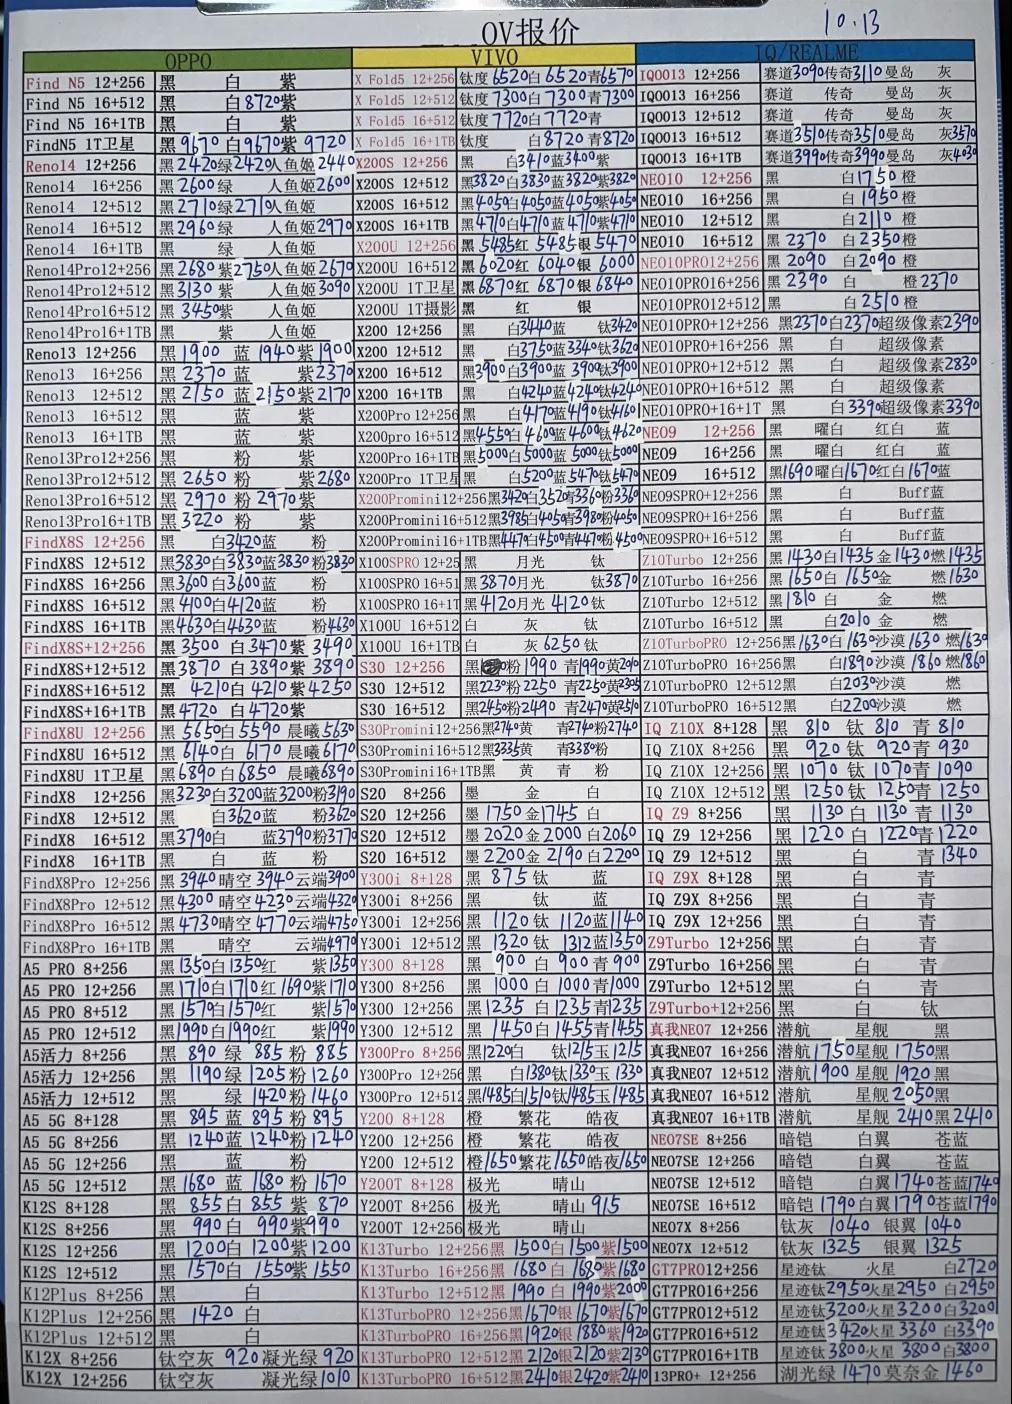 10.13
OV报价
OPPO VIVO IQ/REALME
Find N5 12+256 黑 白 紫 X Fold5 12+256 钛度 6520 白 6520 青 6570 IQOO13 12+256 赛道 3090 传奇 3110 曼岛 灰
Find N5 16+512 黑 白 8720 紫 X Fold5 12+512 钛度 7300 白 7300 青 7300 IQOO13 16+256 赛道 传奇 曼岛 灰
Find N5 16+1TB 黑 白 紫 X Fold5 16+512 钛度 7720 白 7720 青 IQOO13 12+512 赛道 传奇 曼岛 灰
FindN5 1T卫星 黑 9670 白 9670 紫 9720 X Fold5 16+1TB 钛度 白 8720 青 8720 IQOO13 16+512 赛道 3510 传奇 3510 曼岛 灰 3570
Reno14 12+256 黑 2420 绿 2420 人鱼姬 2440 X200S 12+256 黑 白 3410 蓝 3400 紫 IQOO13 16+1TB 赛道 3990 传奇 3990 曼岛 灰 4030
Reno14 16+256 黑 2600 绿 人鱼姬 2600 X200S 12+512 黑 3820 白 3830 蓝 3820 紫 3820 NEO10 12+256 黑 白 1750 橙
Reno14 12+512 黑 2710 绿 2710 人鱼姬 X200S 16+512 黑 4050 白 4050 蓝 4050 紫 4050 NEO10 16+256 黑 白 1950 橙
Reno14 16+512 黑 2960 绿 人鱼姬 2970 X200S 16+1TB 黑 4710 白 4710 蓝 4710 紫 4710 NEO10 12+512 黑 白 2110 橙
Reno14 16+1TB 黑 绿 人鱼姬 X200U 12+256 黑 5485 红 5485 银 5470 NEO10 16+512 黑 2370 白 2350 橙
Reno14Pro12+256 黑 2680 紫 2750 人鱼姬 2670 X200U 16+512 黑 6020 红 6040 银 6000 NEO10PRO12+256 黑 2090 白 2090 橙
Reno14Pro12+512 黑 3130 紫 人鱼姬 3090 X200U 1T卫星 黑 6870 红 6870 银 6840 NEO10PRO16+256 黑 2390 白 橙 2370
Reno14Pro16+512 黑 3450 紫 人鱼姬 X200U 1T摄影 黑 红 银 NEO10PRO12+512 黑 白 2510 橙
Reno14Pro16+1TB 黑 紫 人鱼姬 X200 12+256 黑 白 3440 蓝 钛 3420 NEO10PRO+12+256 黑 2370 白 2370 超级像素 2390
Reno13 12+256 黑 1900 蓝 1940 紫 1900 X200 12+512 黑 白 3750 蓝 3340 钛 3620 NEO10PRO+16+256 黑 白 超级像素
Reno13 16+256 黑 2370 蓝 紫 2370 X200 16+512 黑 3900 白 3900 蓝 3900 钛 3900 NEO10PRO+12+512 黑 白 超级像素 2830
Reno13 12+512 黑 2150 蓝 2150 紫 2170 X200 16+1TB 黑 白 4240 蓝 4240 钛 4240 NEO10PRO+16+512 黑 白 超级像素
Reno13 16+512 黑 蓝 紫 X200Pro 12+256 黑 白 4170 蓝 4190 钛 4160 NEO10PRO+16+1T 黑 白 3390 超级像素 3390
Reno13 16+1TB 黑 蓝 紫 X200pro 16+512 黑 4550 白 4600 蓝 4600 钛 4620 NEO9 12+256 黑 曜白 红白 蓝
Reno13Pro12+256 黑 粉 紫 X200Pro 16+1TB 黑 5000 白 5000 蓝 5000 钛 5000 NEO9 16+256 黑 曜白 红白 蓝
Reno13Pro12+512 黑 2650 粉 紫 2680 X200Pro 1T卫星 黑 白 5200 蓝 5470 钛 5470 NEO9 16+512 黑 1690 曜白 1670 红白 1670 蓝
Reno13Pro16+512 黑 2970 粉 2970 紫 X200Promini12+256 黑 3420 白 3520 青 3360 粉 3360 NEO9SPRO+12+256 黑 白 Buff蓝
Reno13Pro16+1TB 黑 3220 粉 紫 X200Promini16+512 黑 3985 白 4050 青 3980 粉 4050 NEO9SPRO+16+256 黑 白 Buff蓝
FindX8S 12+256 黑 白 3420 蓝 粉 X200Promini16+1TB 黑 4470 白 4500 青 4470 粉 4500 NEO9SPRO+16+512 黑 白 Buff蓝
FindX8S 12+512 黑 3830 白 3830 蓝 3830 粉 3830 X100SPRO 12+25 黑 月光 钛 Z10Turbo 12+256 黑 1430 白 1435 金 1430 燃 1435
FindX8S 16+256 黑 3600 白 3600 蓝 粉 X100SPRO 16+51 黑 3870 月光 钛 3870 Z10Turbo 16+256 黑 1650 白 1650 金 燃 1630
FindX8S 16+512 黑 4100 白 4120 蓝 粉 X100SPRO 16+1T 黑 4120 月光 4120 钛 Z10Turbo 12+512 黑 1810 白 金 燃
FindX8S 16+1TB 黑 4630 白 4630 蓝 粉 4630 X100U 16+512 白 灰 钛 Z10Turbo 16+512 黑 白 2010 金 燃
FindX8S+12+256 黑 3500 白 3470 紫 3490 X100U 16+1TB 白 灰 6250 钛 Z10TurboPRO 12+256 黑 1630 白 1630 沙漠 1630 燃 1630
FindX8S+12+512 黑 3870 白 3890 紫 3890 S30 12+256 黑 粉 1990 青 1990 黄 2010 Z10TurboPRO 16+256 黑 白 1890 沙漠 1860 燃 1860
FindX8S+16+512 黑 4210 白 4210 紫 4250 S30 12+512 黑 2230 粉 2250 青 2250 黄 2305 Z10TurboPRO 12+512 黑 白 2030 沙漠 燃
FindX8S+16+1TB 黑 4720 白 4720 紫 S30 16+512 黑 2450 粉 2490 青 2470 黄 2510 Z10TurboPRO 16+512 黑 白 2200 沙漠 燃
FindX8U 12+256 黑 5650 白 5590 晨曦 5630 S30Promini12+256 黑 2740 黄 青 2740 粉 2740 IQ Z10X 8+128 黑 810 钛 810 青 810
FindX8U 16+512 黑 6140 白 6170 晨曦 6170 S30Promini16+512 黑 3335 黄 青 3380 粉 IQ Z10X 8+256 黑 920 钛 920 青 930
FindX8U 1T卫星 黑 6890 白 6850 晨曦 6890 S30Promini16+1TB 黑 黄 青 粉 IQ Z10X 12+256 黑 1070 钛 1070 青 1090
FindX8 12+256 黑 3230 白 3200 蓝 3200 粉 3190 S20 8+256 墨 金 白 IQ Z10X 12+512 黑 1250 钛 1250 青 1250
FindX8 12+512 黑 白 3620 蓝 粉 3620 S20 12+256 墨 1750 金 1745 白 IQ Z9 8+256 黑 1130 白 1130 青 1130
FindX8 16+512 黑 3790 白 蓝 3790 粉 3770 S20 12+512 墨 2020 金 2000 白 2060 IQ Z9 12+256 黑 1220 白 1220 青 1220
FindX8 16+1TB 黑 白 蓝 粉 S20 16+512 墨 2200 金 2190 白 2200 IQ Z9 12+512 黑 白 青 1340
FindX8Pro 12+256 黑 3940 晴空 3940 云端 3900 Y300i 8+128 黑 875 钛 蓝 IQ Z9X 8+128 黑 白 青
FindX8Pro 12+512 黑 4300 晴空 4230 云端 4320 Y300i 8+256 黑 钛 蓝 IQ Z9X 8+256 黑 白 青
FindX8Pro 16+512 黑 4730 晴空 4770 云端 4750 Y300i 12+256 黑 1120 钛 1120 蓝 1140 IQ Z9X 12+256 黑 白 青
FindX8Pro 16+1TB 黑 晴空 云端 4970 Y300i 12+512 黑 1320 钛 1312 蓝 1350 Z9Turbo 12+256 黑 白 青
A5 PRO 8+256 黑 1350 白 1350 红 紫 1350 Y300 8+128 黑 900 白 900 青 900 Z9Turbo 16+256 黑 白 青
A5 PRO 12+256 黑 1710 白 1710 红 1690 紫 1710 Y300 8+256 黑 1000 白 1000 青 1000 Z9Turbo 12+512 黑 白 青
A5 PRO 8+512 黑 1570 白 1570 红 紫 1570 Y300 12+256 黑 1235 白 1235 青 1235 Z9Turbo+12+256 黑 白 钛
A5 PRO 12+512 黑 1990 白 1990 红 紫 1990 Y300 12+512 黑 1450 白 1455 青 1455 真我NEO7 12+256 潜航 星舰 黑
A5活力 8+256 黑 890 绿 885 粉 885 Y300Pro 8+256 黑 1220 白 钛 1215 玉 1215 真我NEO7 16+256 潜航 1750 星舰 1750 黑
A5活力 12+256 黑 1190 绿 1205 粉 1260 Y300Pro 12+256 黑 白 1380 钛 1330 玉 1330 真我NEO7 12+512 潜航 1900 星舰 1920 黑
A5活力 12+512 黑 绿 1420 粉 1460 Y300Pro 12+512 黑 1485 白 1510 钛 1485 玉 1485 真我NEO7 16+512 潜航 星舰 2050 黑
A5 5G 8+128 黑 895 蓝 895 粉 895 Y200 8+128 橙 繁花 皓夜 真我NEO7 16+1TB 潜航 星舰 2410 黑 2410
A5 5G 8+256 黑 1240 蓝 1240 粉 1240 Y200 12+256 橙 繁花 皓夜 NEO7SE 8+256 暗铠 白翼 苍蓝
A5 5G 12+256 黑 蓝 粉 Y200 12+512 橙 1650 繁花 1650 皓夜 1650 NEO7SE 12+256 暗铠 白翼 苍蓝
A5 5G 12+512 黑 1680 蓝 1680 粉 1670 Y200T 8+128 极光 晴山 NEO7SE 12+512 暗铠 白翼 1740 苍蓝 1740
K12S 8+128 黑 855 白 855 紫 870 Y200T 8+256 极光 晴山 915 NEO7SE 16+512 暗铠 1790 白翼 1790 苍蓝 1790
K12S 8+256 黑 990 白 990 紫 990 Y200T 12+256 极光 晴山 NEO7X 8+256 钛灰 1040 银翼 1040
K12S 12+256 黑 1200 白 1200 紫 1200 K13Turbo 12+256 黑 1500 白 1500 紫 1500 NEO7X 12+512 钛灰 1325 银翼 1325
K12S 12+512 黑 1570 白 1550 紫 1550 K13Turbo 16+256 黑 1680 白 1680 紫 1680 GT7PRO12+256 星迹钛 火星 白 2720
K12Plus 8+256 黑 白 K13Turbo 12+512 黑 1990 白 1990 紫 2000 GT7PRO16+256 星迹钛 2950 火星 2950 白 2950
K12Plus 12+256 黑 1420 白 K13TurboPRO 12+256 黑 1670 银 1670 紫 1670 GT7PRO12+512 星迹钛 3200 火星 3200 白 3200
K12Plus 12+512 黑 白 K13TurboPRO 16+256 黑 1920 银 1880 紫 1920 GT7PRO16+512 星迹钛 3420 火星 3360 白 3390
K12X 8+256 钛空灰 920 凝光绿 920 K13TurboPRO 12+512 黑 2120 银 2120 紫 2130 GT7PRO16+1TB 星迹钛 3800 火星 3800 白 3800
K12X 12+256 钛空灰 凝光绿 1010 K13TurboPRO 16+512 黑 2410 银 2420 紫 2410 13PRO+ 12+256 湖光绿 1470 莫奈金 1460